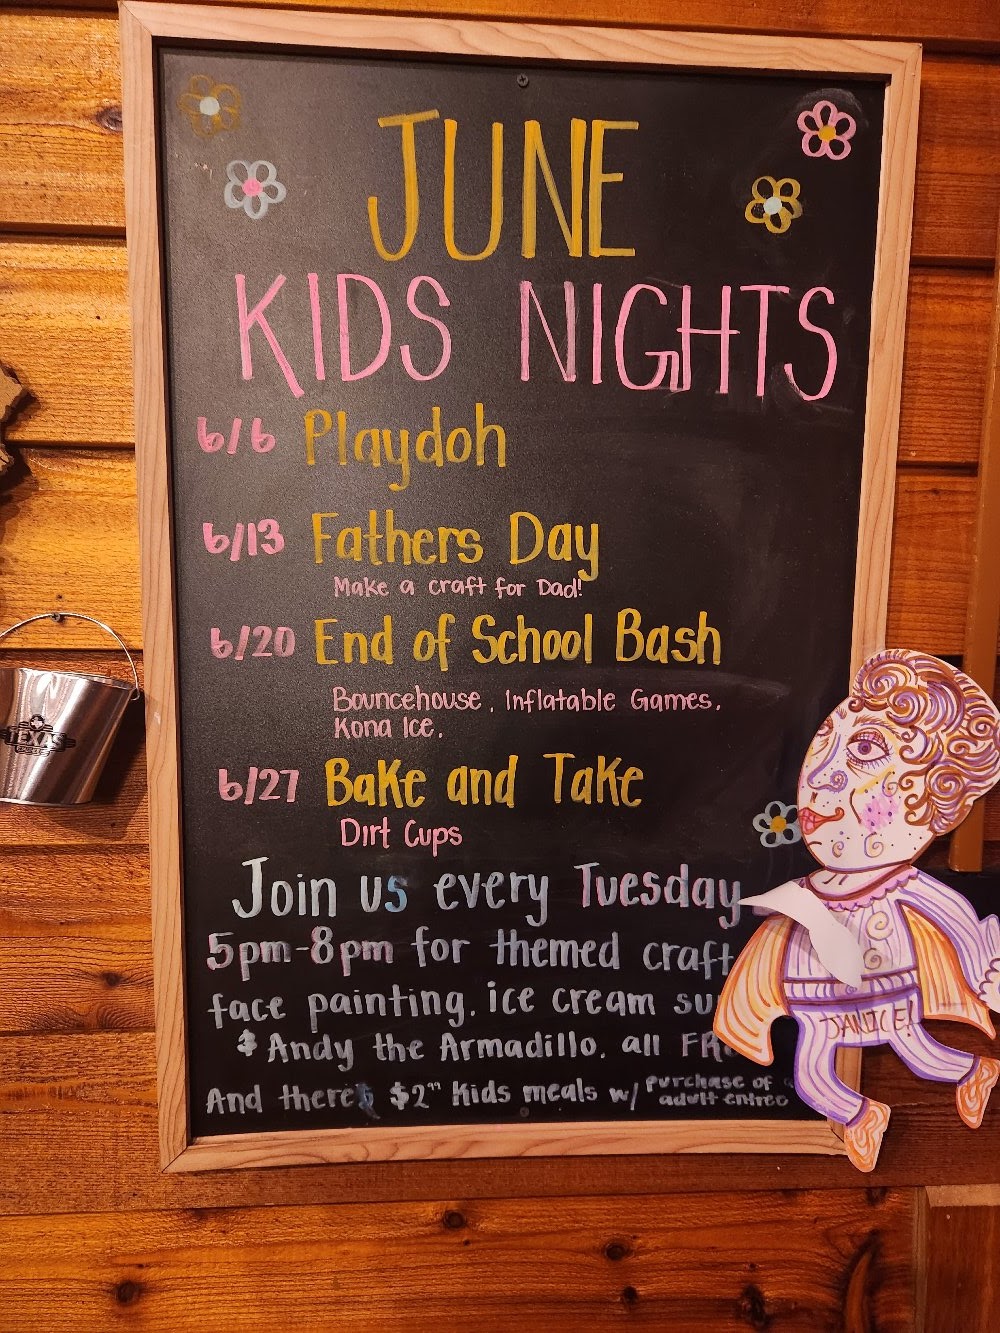 JUNE
KIDS NIGHTS
6/6 Playdoh
6/13 Fathers Day
Make a craft for Dad!
6/20 End of School Bash
Bouncehouse, Inflatable Games,
Kona Ice.
6/27 Bake and Take
Dirt Cups
Join us every Tuesday
5pm-8pm for themed craft
face painting, ice cream su
$ Andy the Armadillo, all FR
And there $2⁹⁹ Kids meals w/ purchase of a
adult entree
JANICE!
TEXAS